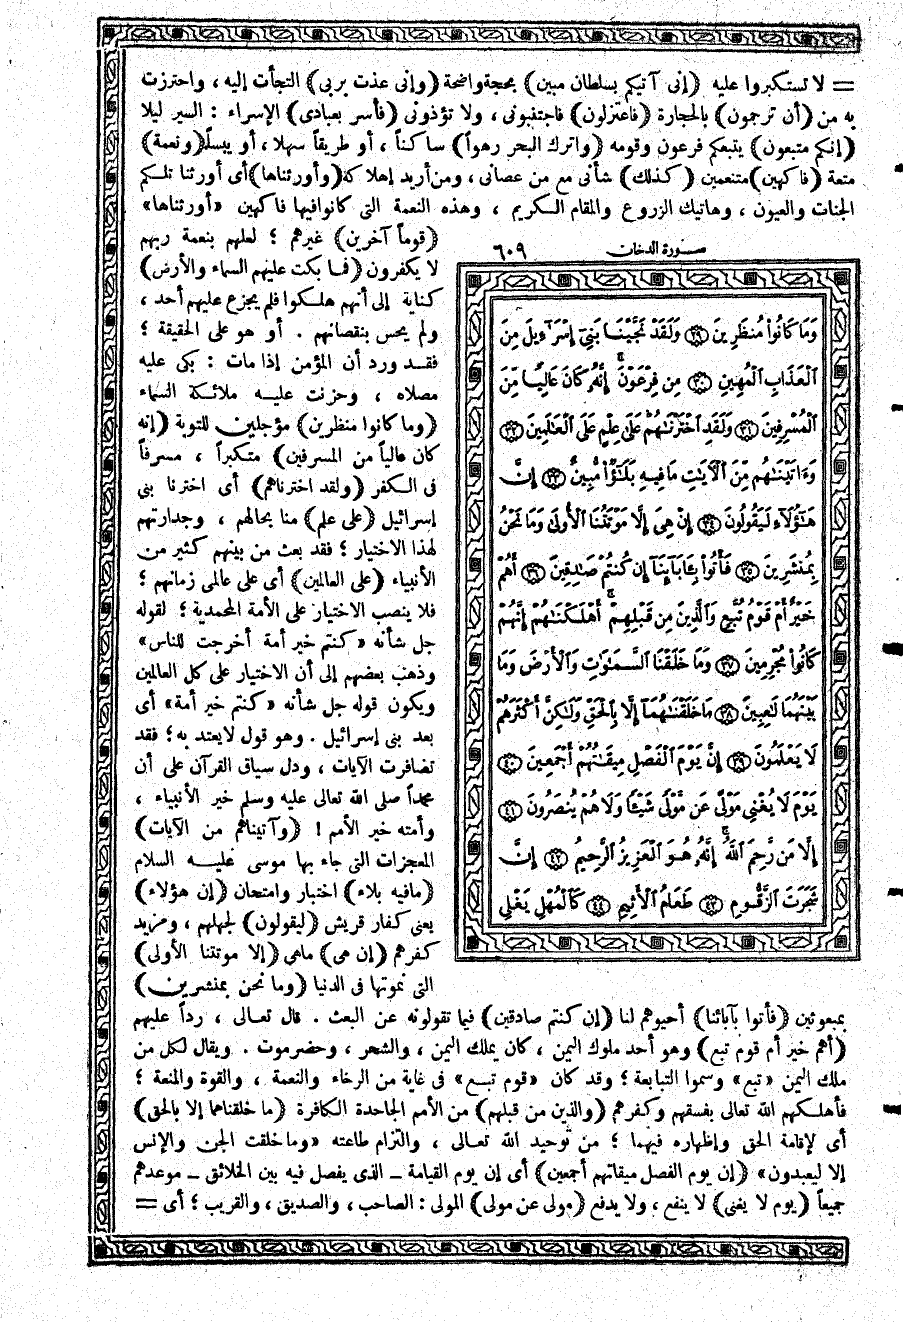 = لا تستكبروا عليه (إنى آتيكم بسلطان مبين) بحجة واضحة (وإنى عذت بربى) التجأت إليه، واحترزت
به من (أن ترجمون) بالحجارة (فاعتزلون) فاجتنبونى، ولا تؤذونى (فأسر بعبادى) الإسراء: السير ليلا
(إنكم متبعون) يتبعكم فرعون وقومه (واترك البحر رهواً) ساكناً، أو طريقاً سهلا، أو يبساً (ونعمة)
متعة (فاكهين) متنعمين (كذلك) شأنى مع من عصانى، ومن أريد إهلاكه (وأورثناها) أى أورثنا تلكم
الجنات والعيون، وهاتيك الزروع والمقام الكريم، وهذه النعمة التى كانوا فيها فاكهين «أورثناها»
(قوماً آخرين) غيرهم؛ لعلهم بنعمة ربهم
لا يكفرون (فما بكت عليهم السماء والأرض)
كناية إلى أنهم هلكوا فلم يجزع عليهم أحد،
ولم يحس بنقصانهم. أو هو على الحقيقة؛
فقد ورد أن المؤمن إذا مات: بكى عليه
مصلاه، وحزنت عليه ملائكة السماء
(وما كانوا منظرين) مؤجلين للتوبة (إنه
كان عالياً من المسرفين) متكبراً، مسرفاً
فى الكفر (ولقد اخترناهم) أى اخترنا بنى
إسرائيل (على علم) منا بحالهم، وجدارتهم
لهذا الاختيار؛ فقد بعث من بينهم كثير من
الأنبياء (على العالمين) أى على عالمى زمانهم؛
فلا ينصب الاختيار على الأمة المحمدية؛ لقوله
جل شأنه «كنتم خير أمة أخرجت للناس»
وذهب بعضهم إلى أن الاختيار على كل العالمين
ويكون قوله جل شأنه «كنتم خير أمة» أى
بعد بنى إسرائيل. وهو قول لا يعتد به؛ فقد
تضافرت الآيات، ودل سياق القرآن على أن
محمداً صلى الله تعالى عليه وسلم خير الأنبياء،
وأمته خير الأمم! (وآتيناهم من الآيات)
المعجزات التى جاء بها موسى عليه السلام
(مافيه بلاء) اختبار وامتحان (إن هؤلاء)
يعنى كفار قريش (ليقولون) لجهلهم، ومزيد
كفرهم (إن هى) ماهى (إلا موتتنا الأولى)
التى نموتها فى الدنيا (وما نحن بمنشرين)
سورة الدخان ٦٠٩
وَمَا كَانُواْ مُنظَرِينَ ﴿٢٩﴾ وَلَقَدْ نَجَّيْنَا بَنِىٓ إِسْرَٰٓءِيلَ مِنَ
ٱلْعَذَابِ ٱلْمُهِينِ ﴿٣٠﴾ مِن فِرْعَوْنَ إِنَّهُۥ كَانَ عَالِيًا مِّنَ
ٱلْمُسْرِفِينَ ﴿٣١﴾ وَلَقَدِ ٱخْتَرْنَٰهُمْ عَلَىٰ عِلْمٍ عَلَى ٱلْعَٰلَمِينَ ﴿٣٢﴾
وَءَاتَيْنَٰهُم مِّنَ ٱلْأَيَٰتِ مَا فِيهِ بَلَٰٓؤٌاْ مُّبِينٌ ﴿٣٣﴾ إِنَّ
هَٰٓؤُلَآءِ لَيَقُولُونَ ﴿٣٤﴾ إِنْ هِىَ إِلَّا مَوْتَتُنَا ٱلْأُولَىٰ وَمَا نَحْنُ
بِمُنشَرِينَ ﴿٣٥﴾ فَأْتُواْ بِـَٔابَآئِنَآ إِن كُنتُمْ صَٰدِقِينَ ﴿٣٦﴾ أَهُمْ
خَيْرٌ أَمْ قَوْمُ تُبَّعٍ وَٱلَّذِينَ مِن قَبْلِهِمْ أَهْلَكْنَٰهُمْ إِنَّهُمْ
كَانُواْ مُجْرِمِينَ ﴿٣٧﴾ وَمَا خَلَقْنَا ٱلسَّمَٰوَٰتِ وَٱلْأَرْضَ وَمَا
بَيْنَهُمَا لَٰعِبِينَ ﴿٣٨﴾ مَا خَلَقْنَٰهُمَآ إِلَّا بِٱلْحَقِّ وَلَٰكِنَّ أَكْثَرَهُمْ
لَا يَعْلَمُونَ ﴿٣٩﴾ إِنَّ يَوْمَ ٱلْفَصْلِ مِيقَٰتُهُمْ أَجْمَعِينَ ﴿٤٠﴾
يَوْمَ لَا يُغْنِى مَوْلًى عَن مَّوْلًى شَيْـًٔا وَلَا هُمْ يُنصَرُونَ ﴿٤١﴾
إِلَّا مَن رَّحِمَ ٱللَّهُ إِنَّهُۥ هُوَ ٱلْعَزِيزُ ٱلرَّحِيمُ ﴿٤٢﴾ إِنَّ
شَجَرَتَ ٱلزَّقُّومِ ﴿٤٣﴾ طَعَامُ ٱلْأَثِيمِ ﴿٤٤﴾ كَٱلْمُهْلِ يَغْلِى
بمبعوثين (فأتوا بآبائنا) أحيوهم لنا (إن كنتم صادقين) فيما تقولونه عن البعث. قال تعالى، رداً عليهم
(أهم خير أم قوم تبع) وهو أحد ملوك اليمن، كان يملك اليمن، والشحر، وحضرموت. ويقال لكل من
ملك اليمن «تبع» وسموا التبابعة؛ وقد كان «قوم تبع» فى غاية من الرخاء والنعمة، والقوة والمنعة؛
فأهلكهم الله تعالى بفسقهم وكفرهم (والذين من قبلهم) من الأمم الجاحدة الكافرة (ما خلقناهما إلا بالحق)
أى لإقامة الحق وإظهاره فيهما؛ من توحيد الله تعالى، والتزام طاعته «وما خلقت الجن والإنس
إلا ليعبدون» (إن يوم الفصل ميقاتهم أجمعين) أى إن يوم القيامة - الذى يفصل فيه بين الخلائق - موعدهم
جميعاً (يوم لا يغنى) لا ينفع، ولا يدفع (مولى عن مولى) المولى: الصاحب، والصديق، والقريب؛ أى =